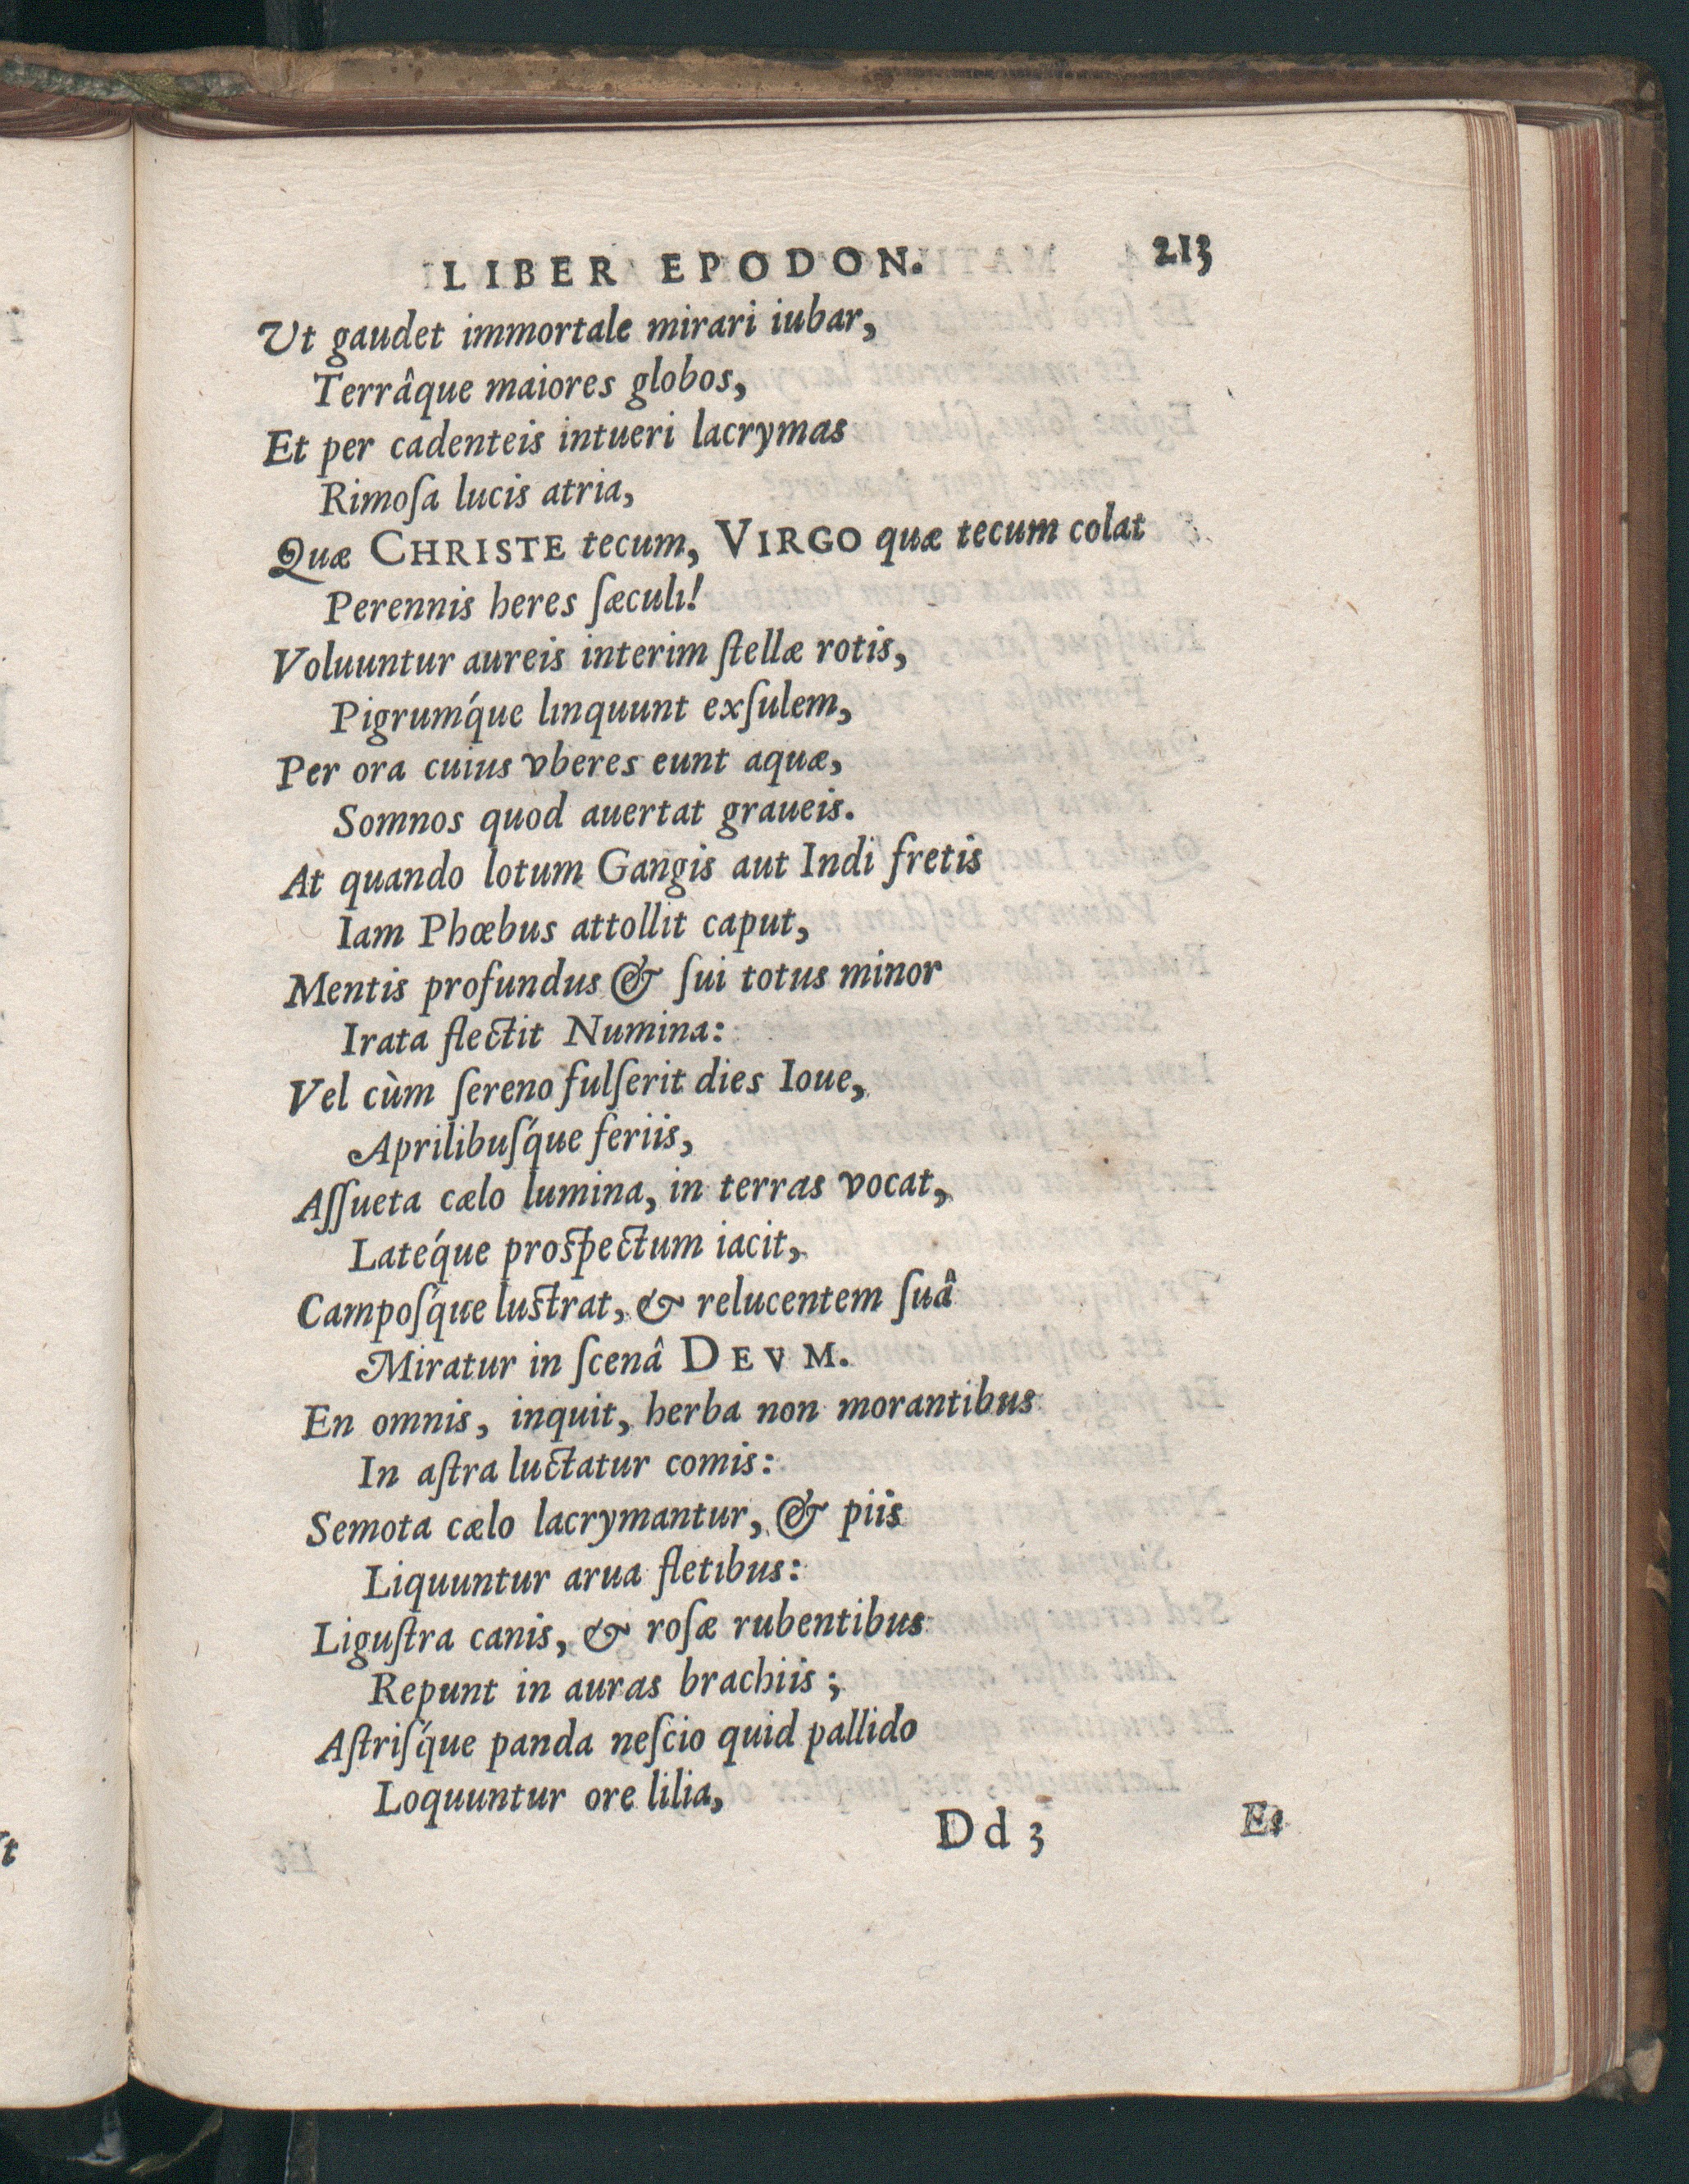 LIBER EPODON. 213
Ut gaudet immortale mirari iubar,
Terrâque maiores globos,
Et per cadenteis intueri lacrymas
Rimoſa lucis atria,
Quæ CHRISTE tecum, VIRGO quæ tecum colat
Perennis heres ſæculi!
Voluuntur aureis interim ſtellæ rotis,
Pigrumq́ue linquunt exſulem,
Per ora cuius vberes eunt aquæ,
Somnos quod auertat graueis.
At quando lotum Gangis aut Indi fretis
Iam Phœbus attollit caput,
Mentis profundus & ſui totus minor
Irata flectit Numina:
Vel cùm ſereno fulſerit dies Ioue,
Aprilibuſq́ue feriis,
Aſſueta cælo lumina, in terras vocat,
Lateq́ue proſpectum iacit,
Campoſq́ue luſtrat, & relucentem ſuâ
Miratur in ſcenâ DEVM.
En omnis, inquit, herba non morantibus
In aſtra luctatur comis:
Semota cælo lacrymantur, & piis
Liquuntur arua fletibus:
Liguſtra canis, & roſæ rubentibus
Repunt in auras brachiis;
Aſtriſq́ue panda neſcio quid pallido
Loquuntur ore lilia,
Dd 3 Et